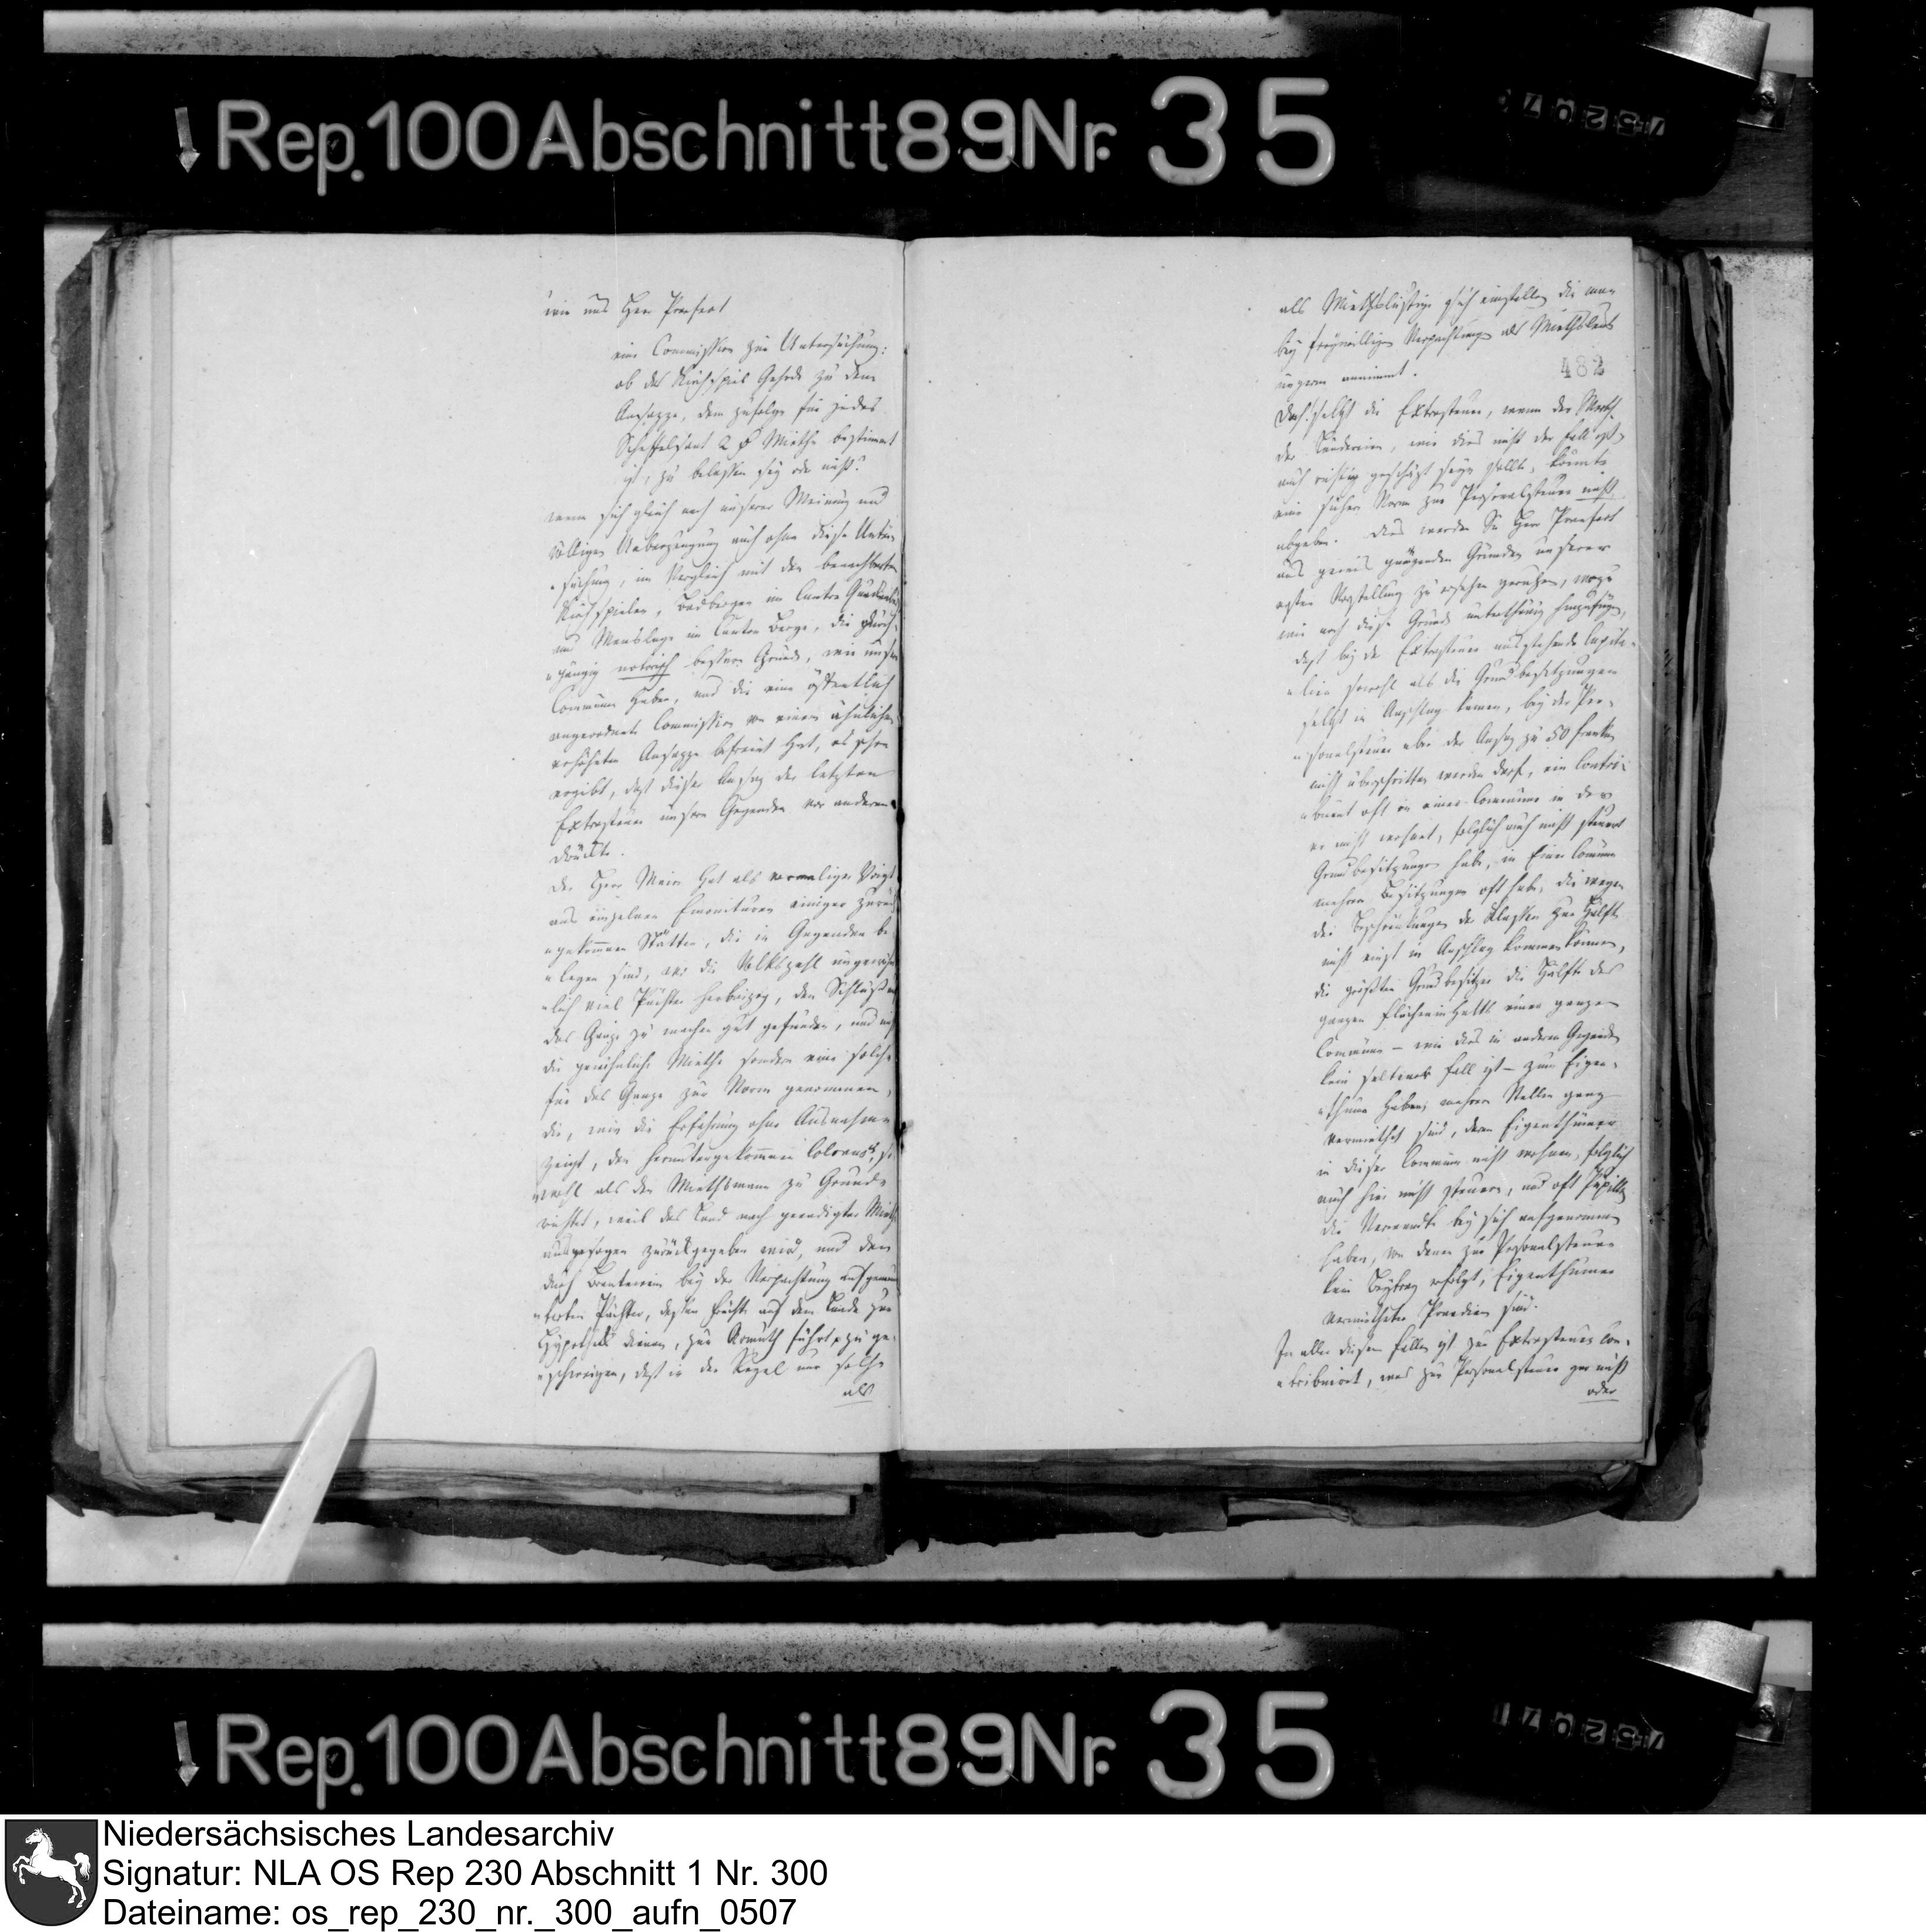 Rep. 100 Abschnitt 89 Nr. 35
wie uns Herr Praefect
eine Commission zur Untersuchung:
ob das Kirchspiel Gehrde zu dem
Ansazze, dem zufolge für jedes
Scheffelsaat 2 Miethe bestimmt
ist, zu belassen sey oder nicht?
wenn sich gleich nach unserer Meinung und
völligen Ueberzeugung auch ohne diese Unter-
suchung, im Vergleich mit den benachbarten
Kirchspielen, Badbergen im Canton
und Menslage im Canton Berge, die durch-
gängig notorisch bessern Grund, wie unsre
Commune haben, und die eine öffentlich
angeordnete Commission von einem ähnlichen
erhöheten Ansazze befreiet hat, es schon
ergibt, daß dieser Ansaz der letzten
Extrasteuer unsere Gegenden vor anderen
drückte.
Der Herr Maire hat als vormaliger Voigt
aus einzelnen einiger zurück-
gekommenen Stätten, die in Gegenden be-
legen sind, wo die Volkszahl ungewöhn-
lich viel Pächter herbeizog, den Schluß auf
das Ganze zu machen gut gefunden, und nicht
die gewöhnliche Miethe sondern eine solche
für das Ganze zur Norm genommen,
die, wie die Erfahrung ohne Ausnahme
zeigt, den heruntergekommenen so
wohl als den Miethsmann zu Grunde
richtet, weil das Land nach geendigter Miethe
ausgesogen zurückgegeben wird, und den
durch Brantewein bey der Verpachtung aufgemun-
terten Pächter, dessen Früchte auf dem Lande zur
Hypothek dienen, zur Armuth führt, zu ge-
schweigen, daß in der Regel nur solche
als
als Miethslustige sich einstellen die man
bey freywilligen Verpachtungen als Miethsleute
ungern annimmt.
482
Doch selbst die Extrasteuer, wenn der Werth
der Ländereien, wie dies nicht der Fall ist,
auch richtig geschäzt seyn sollte, könnte
eine sichere Norm zur Personalsteuer nicht
abgeben. Dies werden Sie Herr Praefect
aus gewis gnügenden Gründen unserer
ersten Vorstellung zu ersehen geruhen, wozu
wir noch diese Gründe unterthänig hinzufügen,
daß bey der Extrasteuer ausstehende Capita-
lien sowohl als die Grundbesitzungen
selbst in Anschlag kamen, bey der Per-
sonalsteuer aber der Ansaz zu 50 Franken
nicht überschritten werden darf, ein Contri-
buent oft in einer Commune in der
er nicht wohnet, folglich auch nicht steuert
Grundbesitzungen habe, in Einer Commune
mehrere Besitzungen oft habe, die wegen
der Beschränkungen der Klassen zur Hälfte
nicht einst in Anschlag kommen können,
die größten Grundbesitzer die Hälfte des
ganzen Flächeninhalts einer ganzen
Commune – wie dies in anderen Gegenden
kein seltener Fall ist – zum Eigen-
thum haben, mehrere Stellen ganz
vermiethet sind, deren Eigenthümer
in dieser Commune nicht wohnen, folglich
auch hier nicht steuern, und oft Pupillen
die Verwandte bey sich aufgenommen
haben, von denen zur Personalsteuer
kein Beytrag erfolgt, Eigenthümer
vermietheter Praedien sind.
In allen diesen Fällen ist zur Extrasteuer con-
tribuiret, was zur Personalsteuer gar nicht
oder
Rep. 100 Abschnitt 89 Nr. 35
Niedersächsisches Landesarchiv
Signatur: NLA OS Rep 230 Abschnitt 1 Nr. 300
Dateiname: os_rep_230_nr._300_aufn_0507